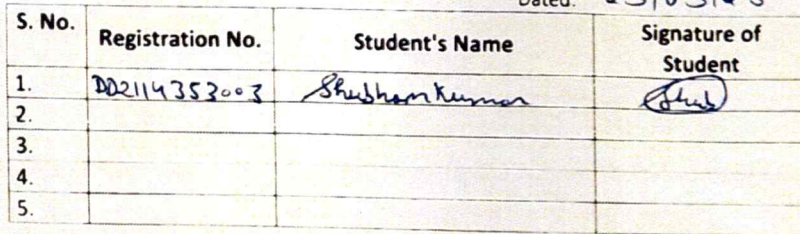 Dated:
S. No. Registration No. Student's Name Signature of Student
1. DD2114353003 Shubham Kumar Shub
2.
3.
4.
5.